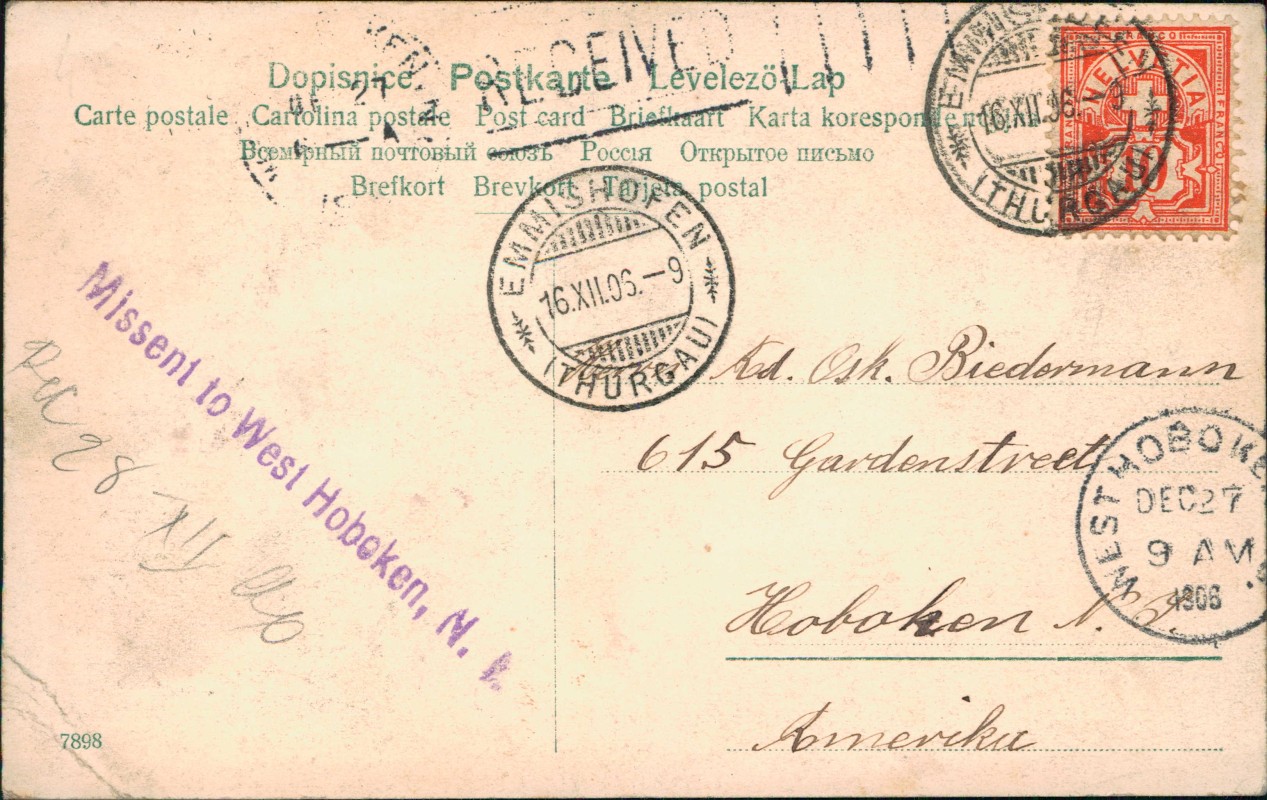 RECEIVED
Dopisnice Postkarte Levelező-Lap
Carte postale Cartolina postale Post card Briefkaart Karta korespond
Всемірный почтовый союзъ Россія Открытое письмо
Brefkort Brevkort Tarjeta postal
EMMISHOFEN
16.XII.06.
(THURGAU)
HELVETIA
FRANCO
10
EMMISHOFEN
16.XII.06.–9
(THURGAU)
Missent to West Hoboken, N. J.
Rec 28 XII 06
Kd. Osk. Biedermann
615 Gardenstreet
Hoboken N. J.
Amerika
WEST HOBOKEN
DEC 27
9 AM
1906
7898